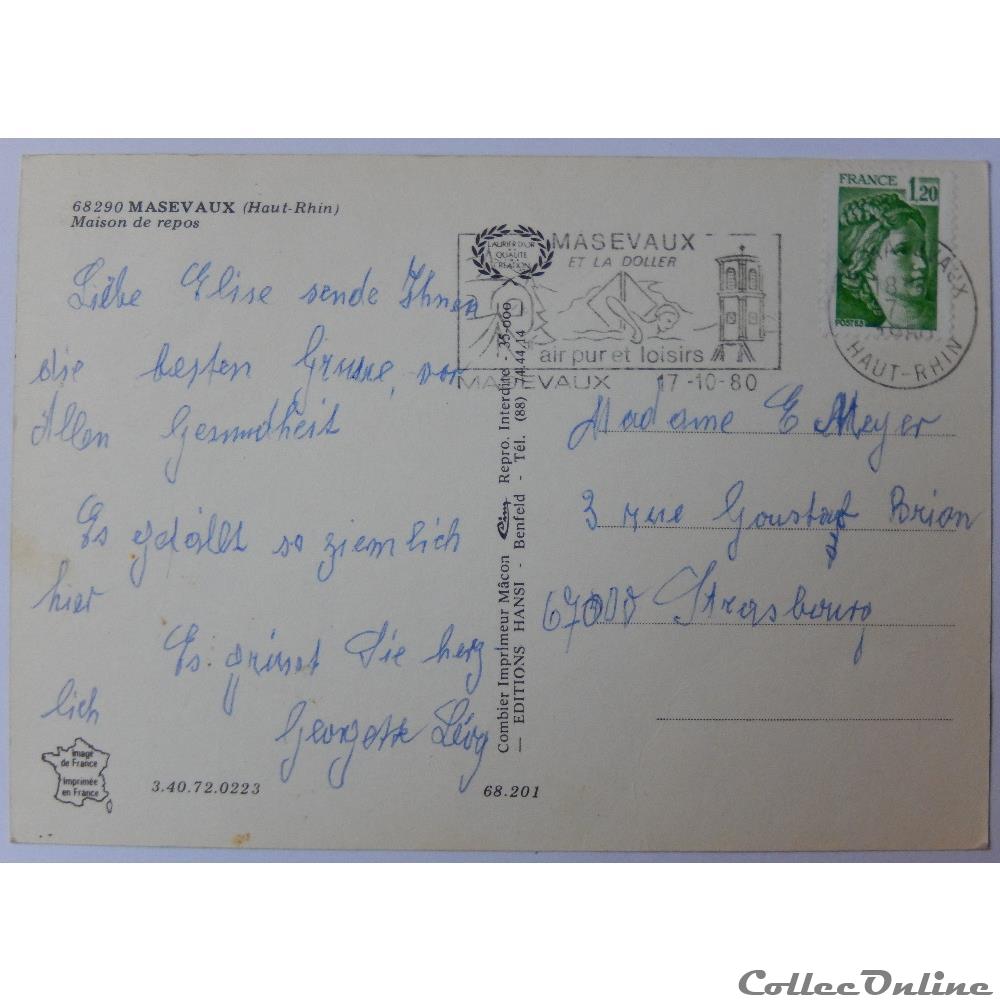 68290 MASEVAUX (Haut-Rhin)
Maison de repos
Liebe Elise sende Ihnen
die besten Grusse, vor
Allen Gesundheit
Es gefällt so ziemlich
hier
Es grüsst Sie herz
lich
Georgette Lévy
Image
de France
Imprimée
en France
3.40.72.0223
68.201
Combier Imprimeur Mâcon Cim Repro. Interdite - 35-000
— EDITIONS HANSI - Benfeld - Tél. (88) 74.44.14
LAURIER D'OR
QUALITE
CREATION
MASEVAUX
ET LA DOLLER
air pur et loisirs
MASEVAUX 17-10-80
FRANCE 1,20
POSTES
HAUT-RHIN
Madame E Meyer
3 rue Goustaf Brion
67000 Strasbourg
CollecOnline